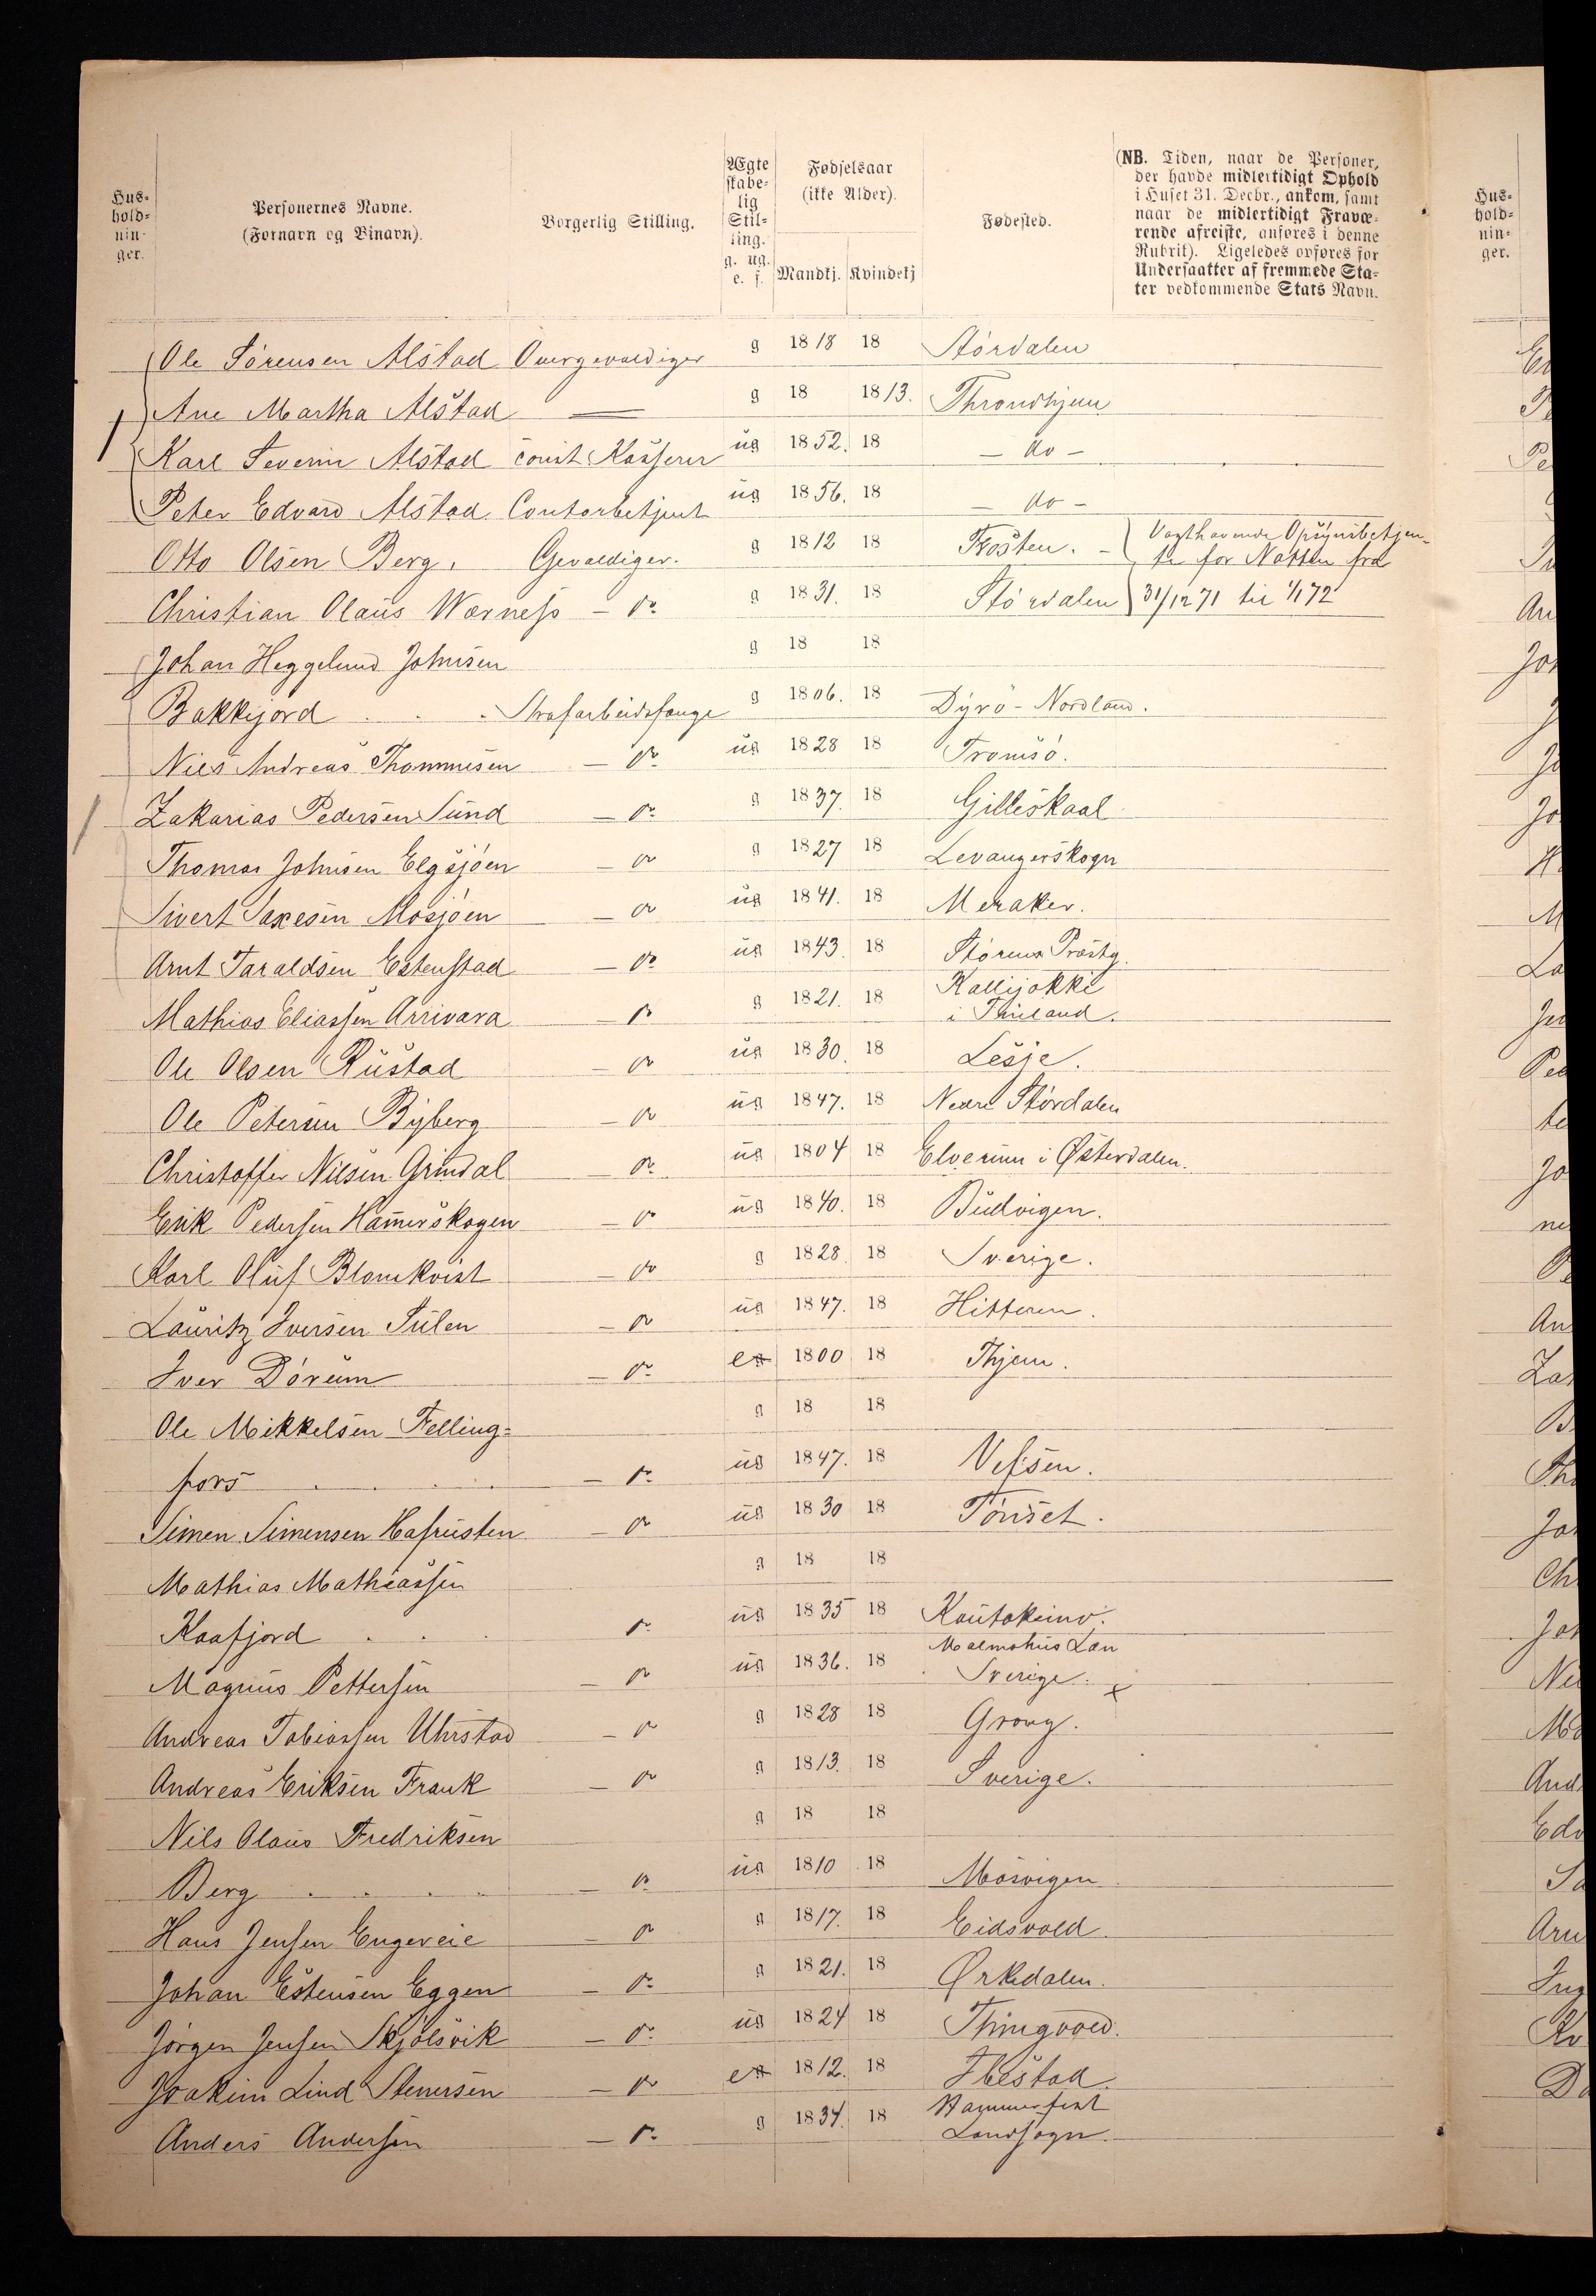 Hus-
hold-
nin-
ger.
Personernes Navne.
(Fornavn og Binavn).
Borgerlig Stilling.
Ægte
skabe-
lig
Stil-
ling.
g. ug.
e. f.
Fødselsaar
(ikke Alder).
Mandkj. Kvindekj
Fødested.
(NB. Tiden, naar de Personer,
der havde midlertidigt Ophold
i Huset 31. Decbr., ankom, samt
naar de midlertidigt Fravæ-
rende afreiste, anføres i denne
Rubrik). Ligeledes opføres for
Undersaatter af fremmede Sta-
ter vedkommende Stats Navn.
Hus-
hold-
nin-
ger.
Ole Sörensen Alstad Overgevaldiger g 1818 18 Stördalen
Ane Martha Alstad — g 18 1813. Throndhjem
1
Karl Severin Alstad const. Kasserer ug 1852. 18 - do -
Peter Edvard Alstad Contorbetjent ug 1856. 18 - do -
Otto Olsen Berg, Gevaldiger. g 1812 18 Frosten. - Vagthavende Opsynsbetjen-
te for Natten fra
Christian Olaus Værness - do g 1831. 18 Stördalen 31/12 71 til 1/1 72
Johan Heggelund Johnsen g 18 18
Bakkejord . . . Strafarbeidsfange g 1806. 18 Dyrö - Nordland.
Niels Andreas Thommesen - do ug 1828 18 Tromsö.
Zakarias Pedersen Sund - do g 1837. 18 Gilleskaal
Thomas Johnsen Elgsjöen - do g 1827 18 Levangerskogn
Sivert Saxesen Mosjöen - do ug 1841. 18 Meraker.
Arnt Taraldsen Estenstad - do ug 1843. 18 Störens Præstg.
Mathias Eliassen Arrivara - do g 1821. 18 Kallijokki
i Finland.
Ole Olsen Rustad - do ug 1830. 18 Lesje.
Ole Petersen Byberg - do ug 1847. 18 Nedre Stördalen
Christoffer Nilsen Grindal - do ug 1804 18 Elverum i Østerdalen.
Erik Pedersen Hamerskogen - do ug 1840. 18 Budvigen.
Karl Oluf Blomkvist - do g 1828 18 Sverige.
Lauritz Iversen Sulen - do ug 1847. 18 Hitteren.
Iver Dörum - do e 1800 18 Thjem.
Ole Mikkelsen Felling= g 18 18
fors . . . . - do ug 1847. 18 Vefsen.
Simen Simensen Hafrusten - do ug 1830 18 Tönset.
Mathias Mathiassen g 18 18
Kaafjord . . . do ug 1835 18 Kautokeino.
Magnus Pettersen - do ug 1836. 18 Malmöhus Län
Sverige. x
Andreas Tobiassen Uhrstad - do g 1828 18 Grong.
Andreas Eriksen Frank - do g 1813. 18 Sverige.
Nils Olaus Fredriksen g 18 18
Berg . . . . - do ug 1810 18 Mosvigen
Hans Jensen Engeveie - do g 1817. 18 Eidsvold.
Johan Estensen Eggen - do g 1821. 18 Ørkedalen.
Jörgen Jensen Skjölsvik - do ug 1824 18 Thingvold.
Joakim Lind Stenersen - do e 1812. 18 Ibestad.
Anders Andersen - do g 1834. 18 Hammerfest
Landsogn.